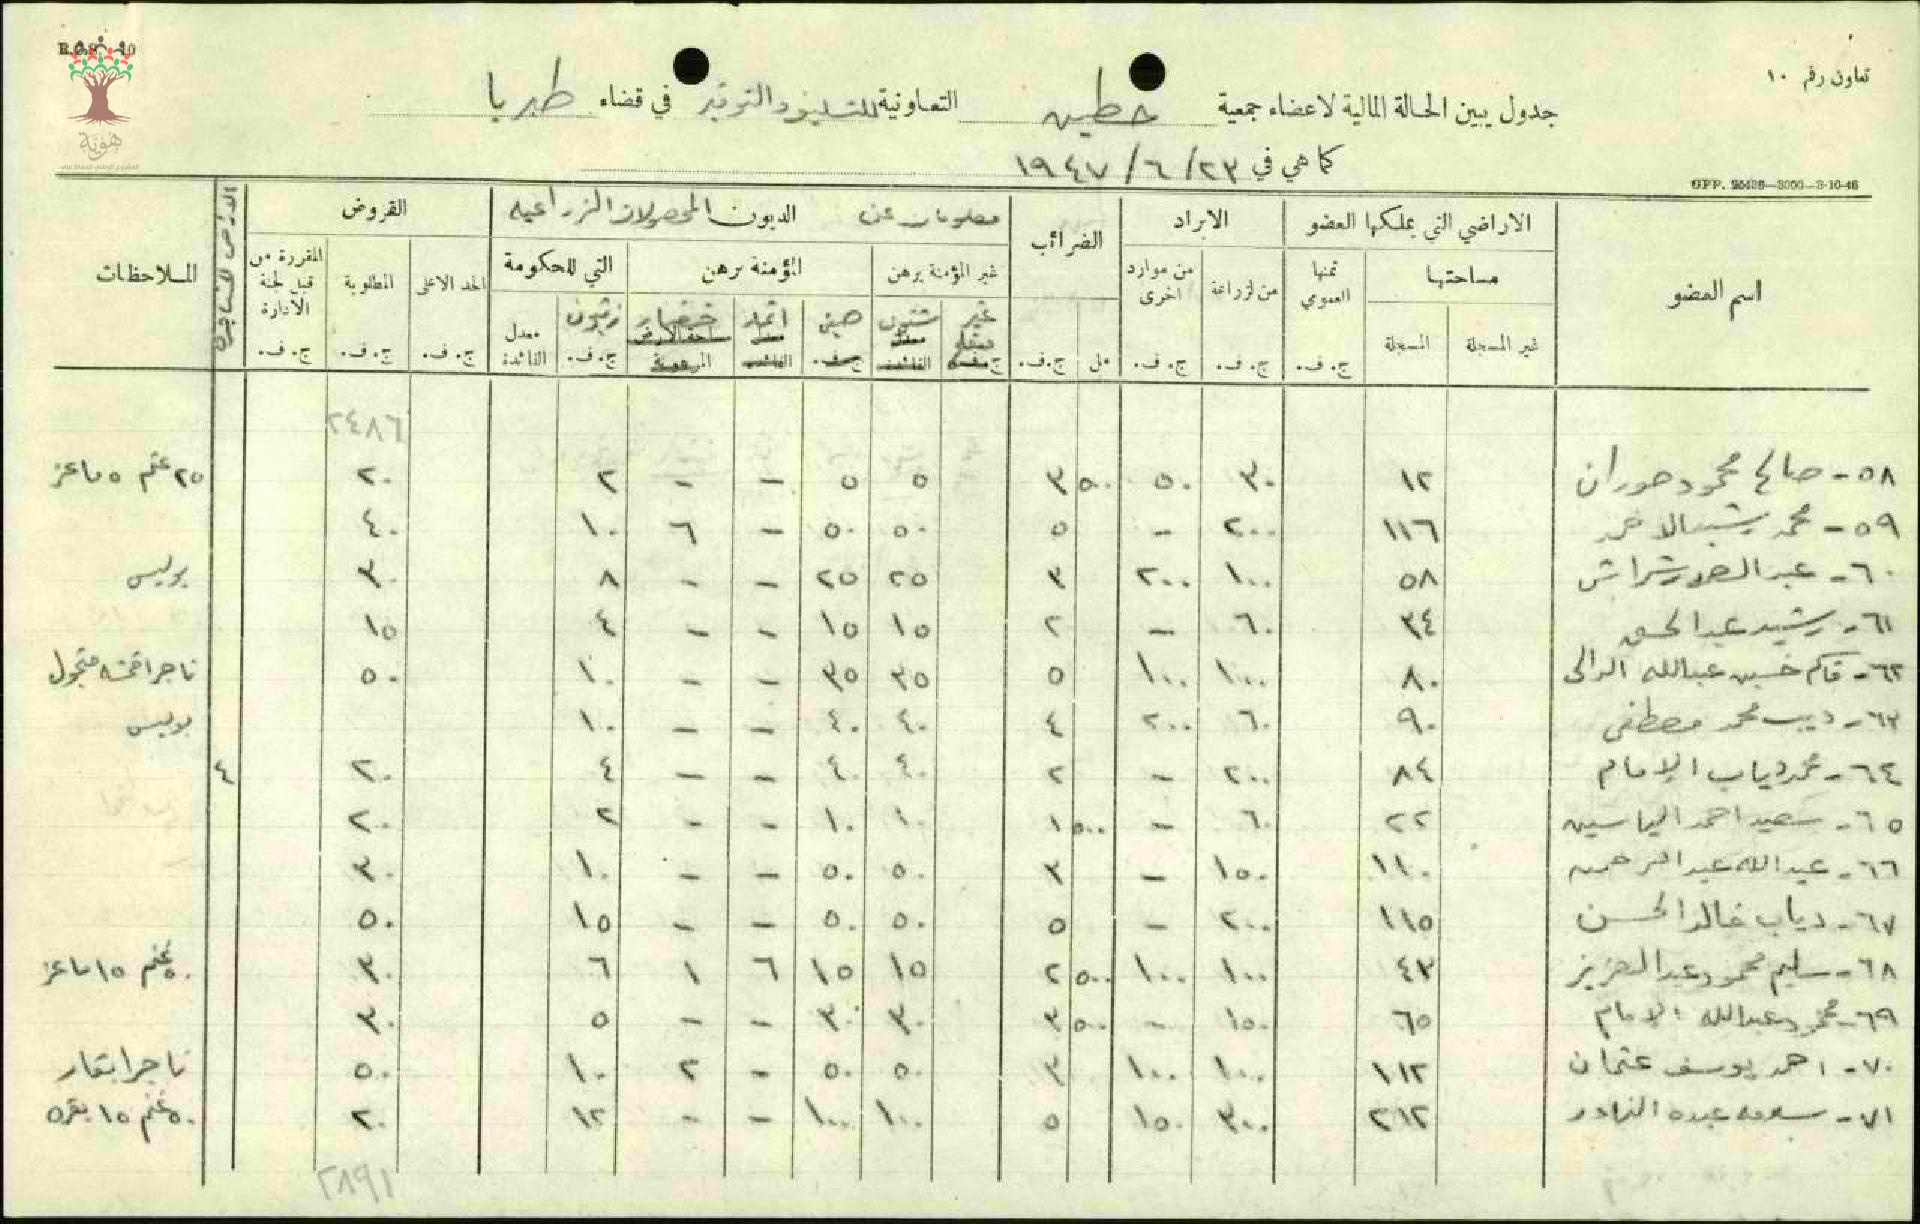 تعاون رقم ١٠
جدول يبين الحالة المالية لاعضاء جمعية حطين التعاونية للتسليف والتوفير في قضاء طبريا
كما هي في ٢٣/٦/١٩٤٧
GPP. 25436—3000—3-10-46
هُويّة
اسم العضو الاراضي التي يملكها العضو الايراد الضرائب معلومات عن الديون المحصولات الزراعيه القروض الارض المستأجرة الملاحظات
مساحتها ثمنها العمومي من لزراعة من موارد اخرى غير المؤمنة برهن المؤمنة برهن التي للحكومة الحد الاعلى المطلوبة المقررة من قبل لجنة الادارة
غير المسجلة المسجلة ج.ف. ج.ف. ج.ف. مل ج.ف. غير شتوي معدل الفائدة صيفي ج.ف. زيتون ج.ف. معدل الفائدة ج.ف. ج.ف. ج.ف.
٢٤٨٦
٥٨ - صالح محمود حوران ١٢ ٣٠ ٥٠ ٥٠٠ ٣ ٥ ٥ - - ٢ ٢٠ ٢٥ غنم ٥ ماعز
٥٩ - محمد رشيد الاحمد ١١٦ ٢٠٠ - ٥ ٥٠ ٥٠ - ٦ ١٠ ٤٠
٦٠ - ٥٨ ١٠٠ ٢٠٠ ٣ ٢٥ ٢٥ - - ٨ ٣٠ بوليس
٦١ - رشيد عبد الحق ٣٤ ٦٠ - ٢ ١٥ ١٥ - - ٤ ١٥
٦٢ - قاسم حسين عبدالله الوالي ٨٠ ١٠٠ ١٠٠ ٥ ٣٥ ٣٥ - - ١٠ ٥٠ تاجر اقمشه متجول
٦٣ - ديب محمد مصطفى ٩٠ ٦٠ ٢٠٠ ٤ ٤٠ ٤٠ - - ١٠ بوليس
٦٤ - محمد دياب الامام ٨٤ ٢٠٠ - ٢ ٤٠ ٤٠ - - ٤ ٢٠ ٤
٦٥ - سعيد احمد الياسين ٢٢ ٦٠ - ٥٠٠ ١ ١٠ ١٠ - - ٢ ٢٠
٦٦ - عبدالله عبد الرحمن ١١٠ ١٥٠ - ٣ ٥٠ ٥٠ - - ١٠ ٣٠
٦٧ - دياب خالد الحسن ١١٥ ٢٠٠ - ٥ ٥٠ ٥٠ - - ١٥ ٥٠
٦٨ - سليم محمود عبد العزيز ٤٣ ١٠٠ ١٠٠ ٥٠٠ ٢ ١٥ ١٥ ٦ ١ ٦ ٣٠ ٥٠ غنم ١٥ ماعز
٦٩ - محمود عبدالله الامام ٦٥ ١٥٠ - ٥٠٠ ٣ ٣٠ ٣٠ - - ٥ ٣٠
٧٠ - احمد يوسف عثمان ١١٢ ١٠٠ ١٠٠ ٣ ٥٠ ٥٠ - ٢ ١٠ ٥٠ تاجر ابقار
٧١ - عبده النادر ٢١٢ ٣٠٠ ١٥٠ ٥ ١٠٠ ١٠٠ - - ١٢ ٢٠ ٥٠ غنم ١٥ بقره
٢٨٩١